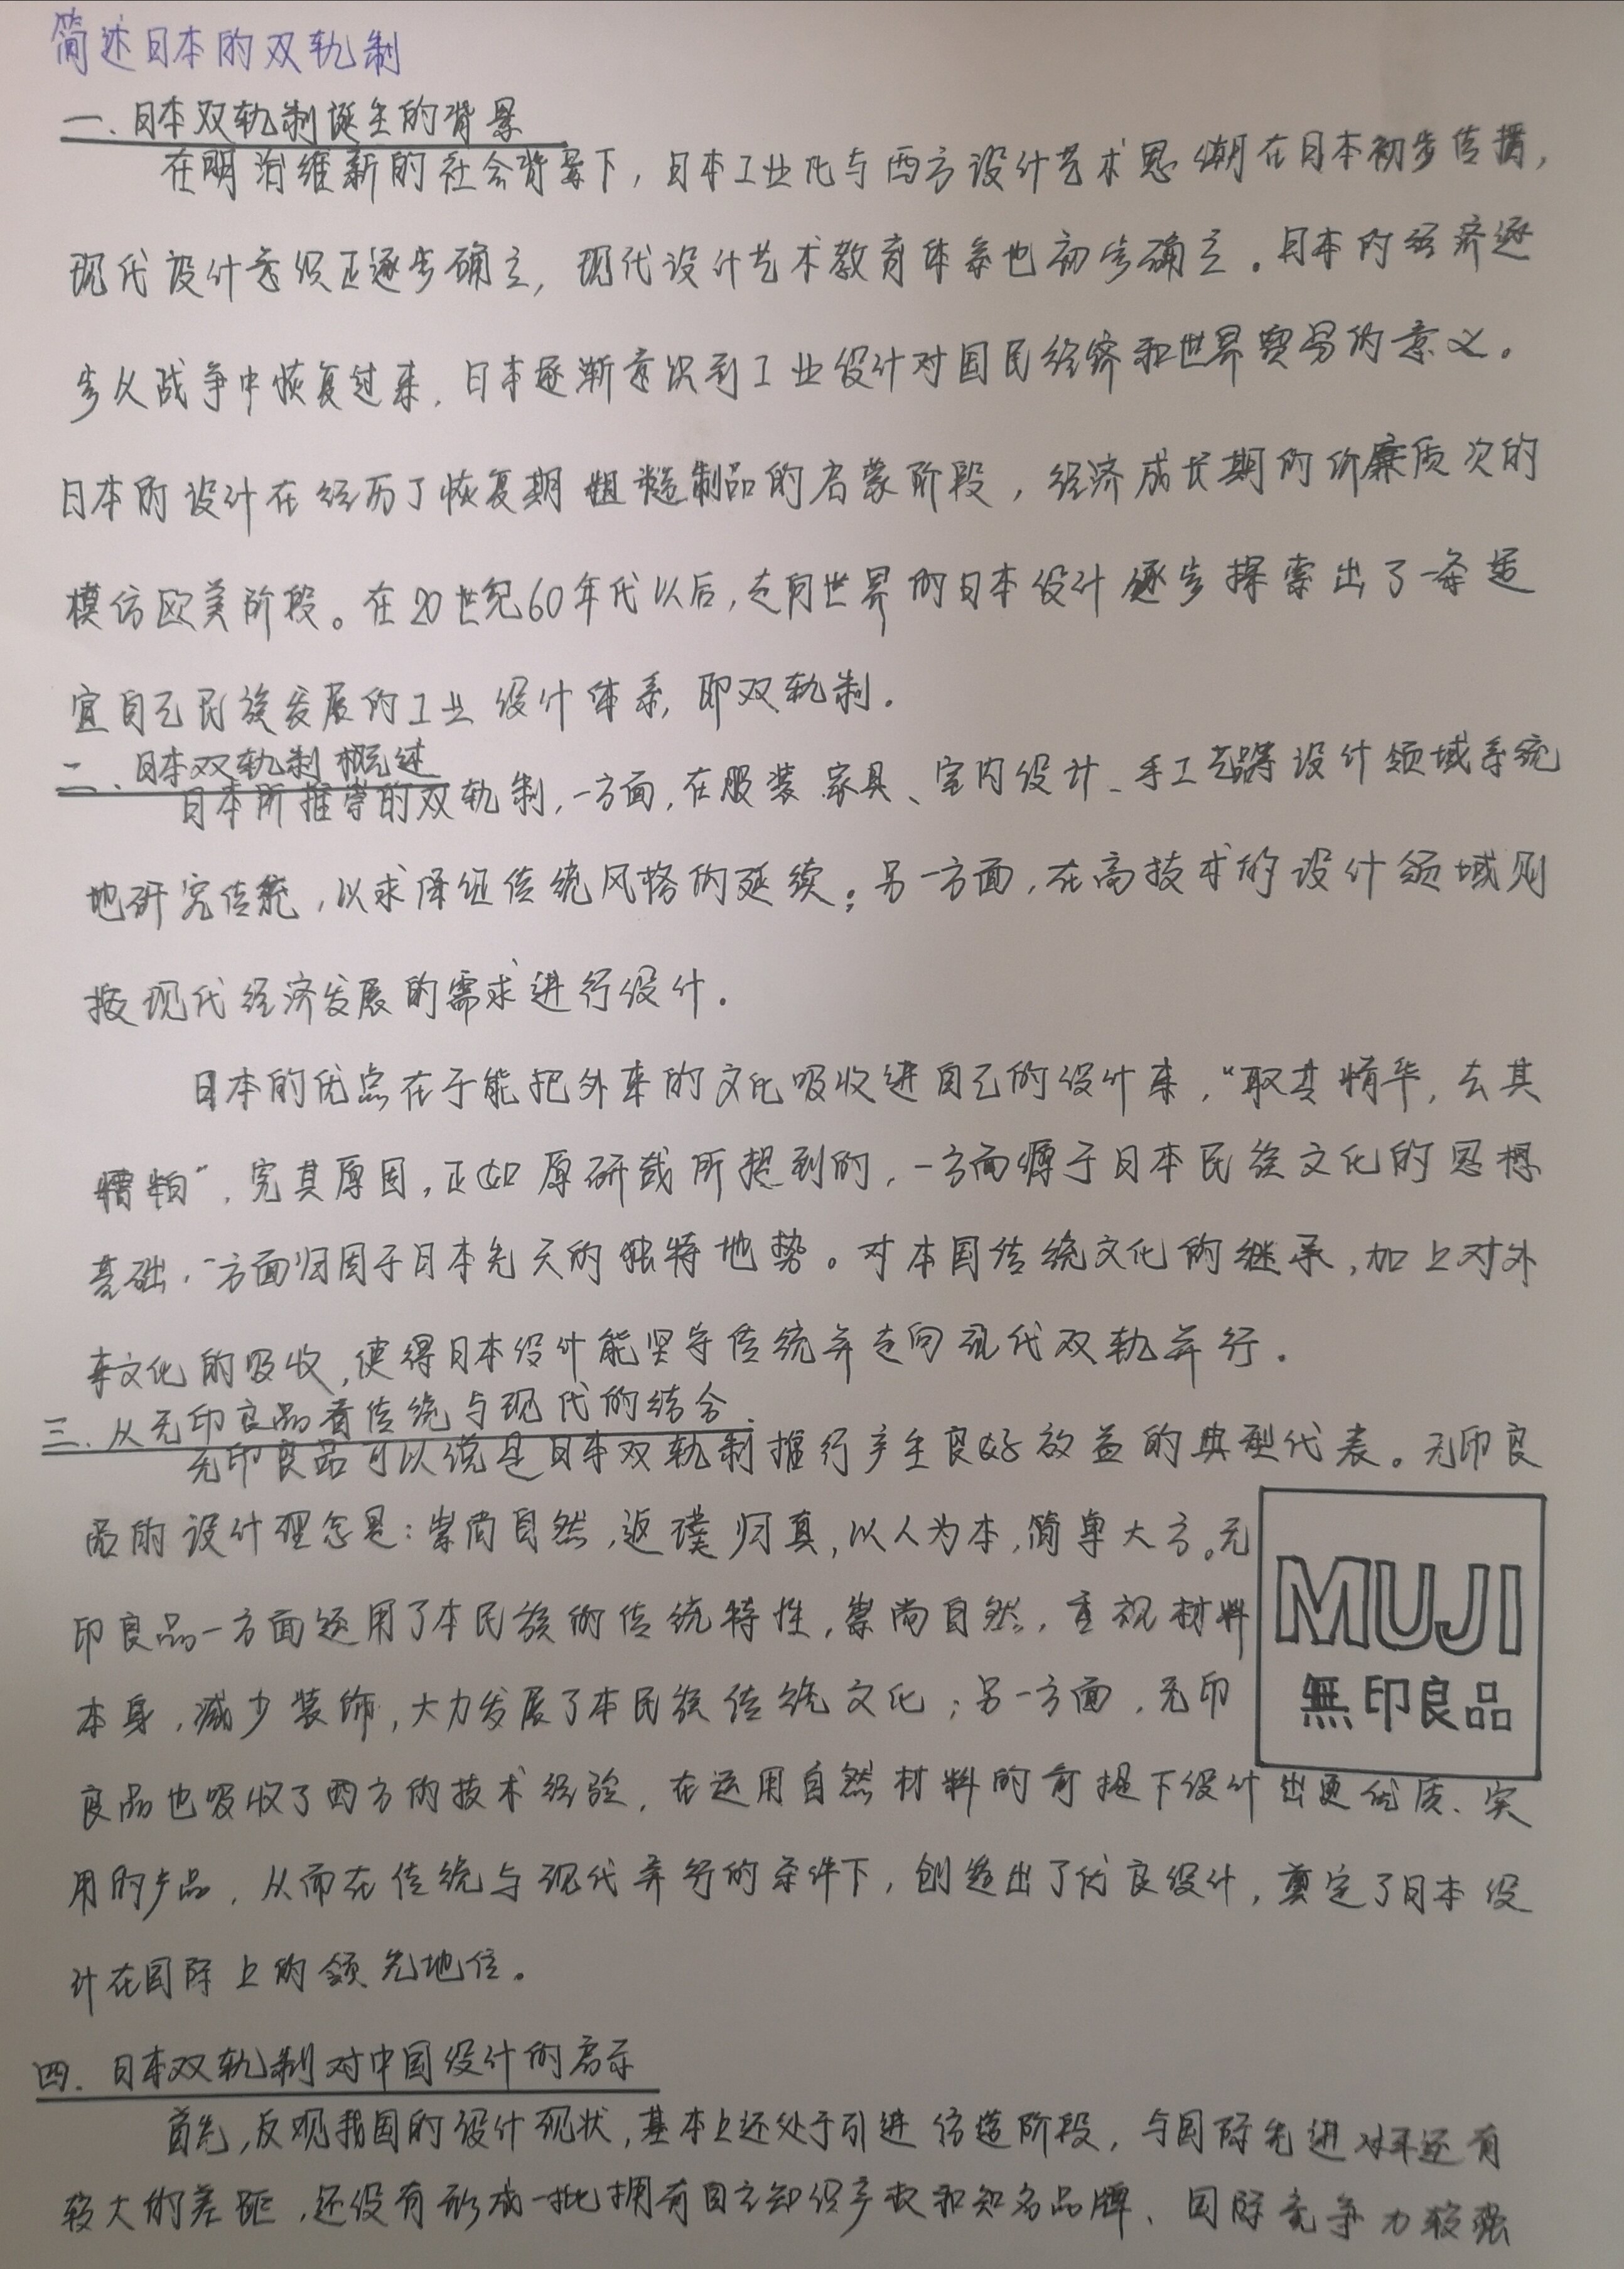 简述日本的双轨制
一.日本双轨制诞生的背景
在明治维新的社会背景下，日本工业化与西方设计艺术思潮在日本初步传播，
现代设计意识正逐步确立，现代设计艺术教育体系也初步确立。日本的经济逐
步从战争中恢复过来，日本逐渐意识到工业设计对国民经济和世界贸易的意义。
日本的设计在经历了恢复期粗糙制品的启蒙阶段，经济成长期的价廉质次的
模仿欧美阶段。在20世纪60年代以后，走向世界的日本设计逐步探索出了一条适
宜自己民族发展的工业设计体系，即双轨制.
二.日本双轨制概述
日本所推崇的双轨制，一方面，在服装、家具、室内设计、手工艺器设计领域系统
地研究传统，以求保证传统风格的延续；另一方面，在高技术的设计领域则
按现代经济发展的需求进行设计.
日本的优点在于能把外来的文化吸收进自己的设计来，“取其精华，去其
糟粕”，究其原因，正如原研哉所提到的，一方面源于日本民族文化的思想
基础，一方面归因于日本先天的独特地势。对本国传统文化的继承，加上对外
来文化的吸收，使得日本设计能坚守传统并走向现代双轨并行.
三.从无印良品看传统与现代的结合.
无印良品可以说是日本双轨制推行产生良好效益的典型代表。无印良
品的设计理念是：崇尚自然，返璞归真，以人为本，简单大方。无
印良品一方面延用了本民族的传统特性，崇尚自然，重视材料
本身，减少装饰，大力发展了本民族传统文化；另一方面，无印
良品也吸收了西方的技术经验，在运用自然材料的前提下设计出更优质、实
用的产品，从而在传统与现代并行的条件下，创造出了优良设计，奠定了日本设
计在国际上的领先地位。
MUJI
無印良品
四.日本双轨制对中国设计的启示
首先，反观我国的设计现状，基本上还处于引进仿造阶段，与国际先进水平还有
较大的差距，还没有形成一批拥有自主知识产权和知名品牌、国际竞争力较强